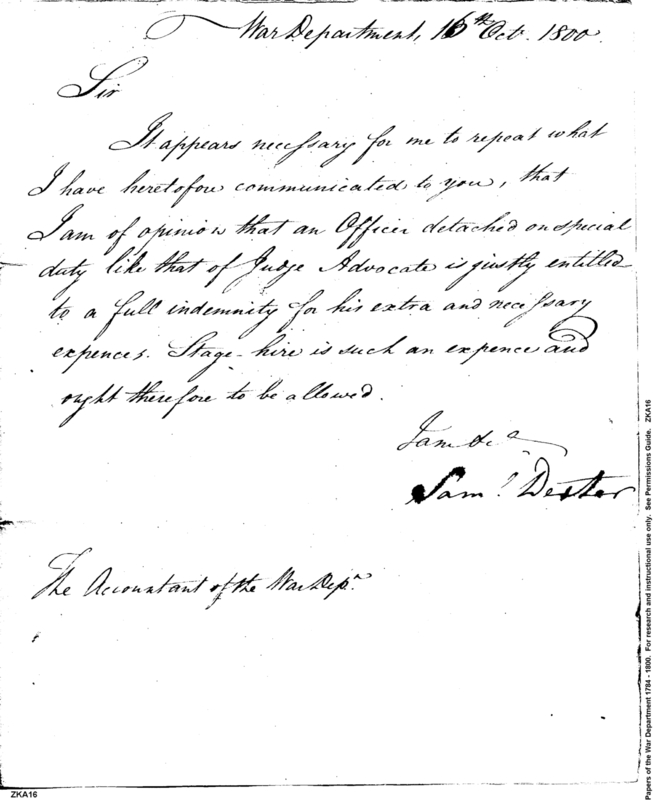 War Department, 16th Oct. 1800.
Sir
It appears necessary for me to repeat what
I have heretofore communicated to you, that
I am of opinion that an Officer detached on special
duty like that of Judge Advocate is justly entitled
to a full indemnity for his extra and necessary
expences. Stage-hire is such an expence and
ought therefore to be allowed.
I am &ca
Saml. Dexter
The Accountant of the War Depn.
ZKA16
Papers of the War Department 1784 - 1800. For research and instructional use only. See Permissions Guide. ZKA16